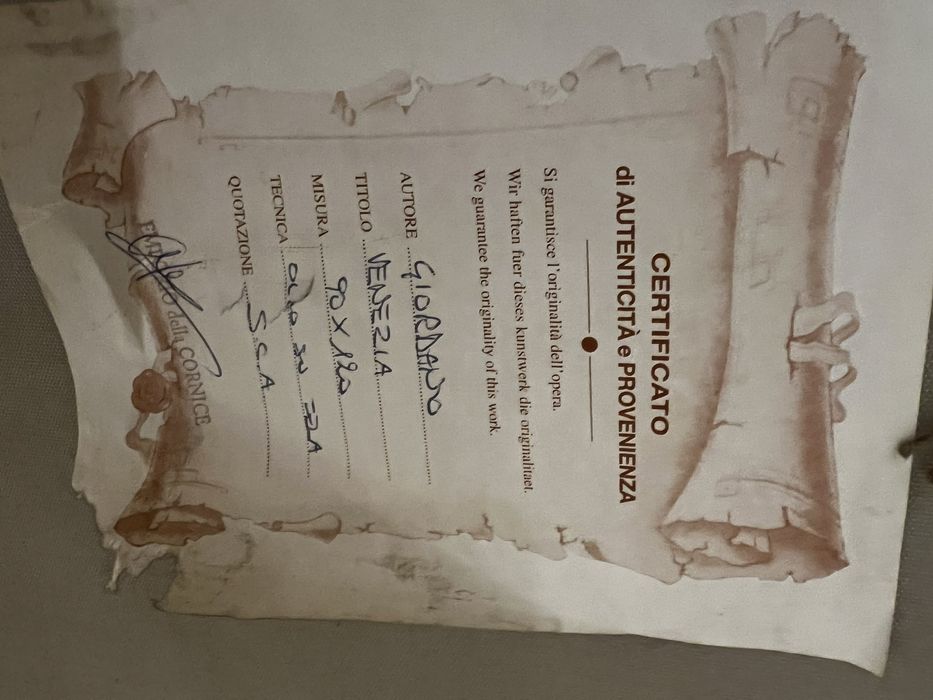 CERTIFICATO
di AUTENTICITÀ e PROVENIENZA
Si garantisce l'originalità dell'opera.
Wir haften fuer dieses kunstwerk die originalitaet.
We guarantee the originality of this work.
AUTORE GIORDANO
TITOLO VENEZIA
MISURA 90X120
TECNICA OLIO SU
QUOTAZIONE S.C.A.
della CORNICE